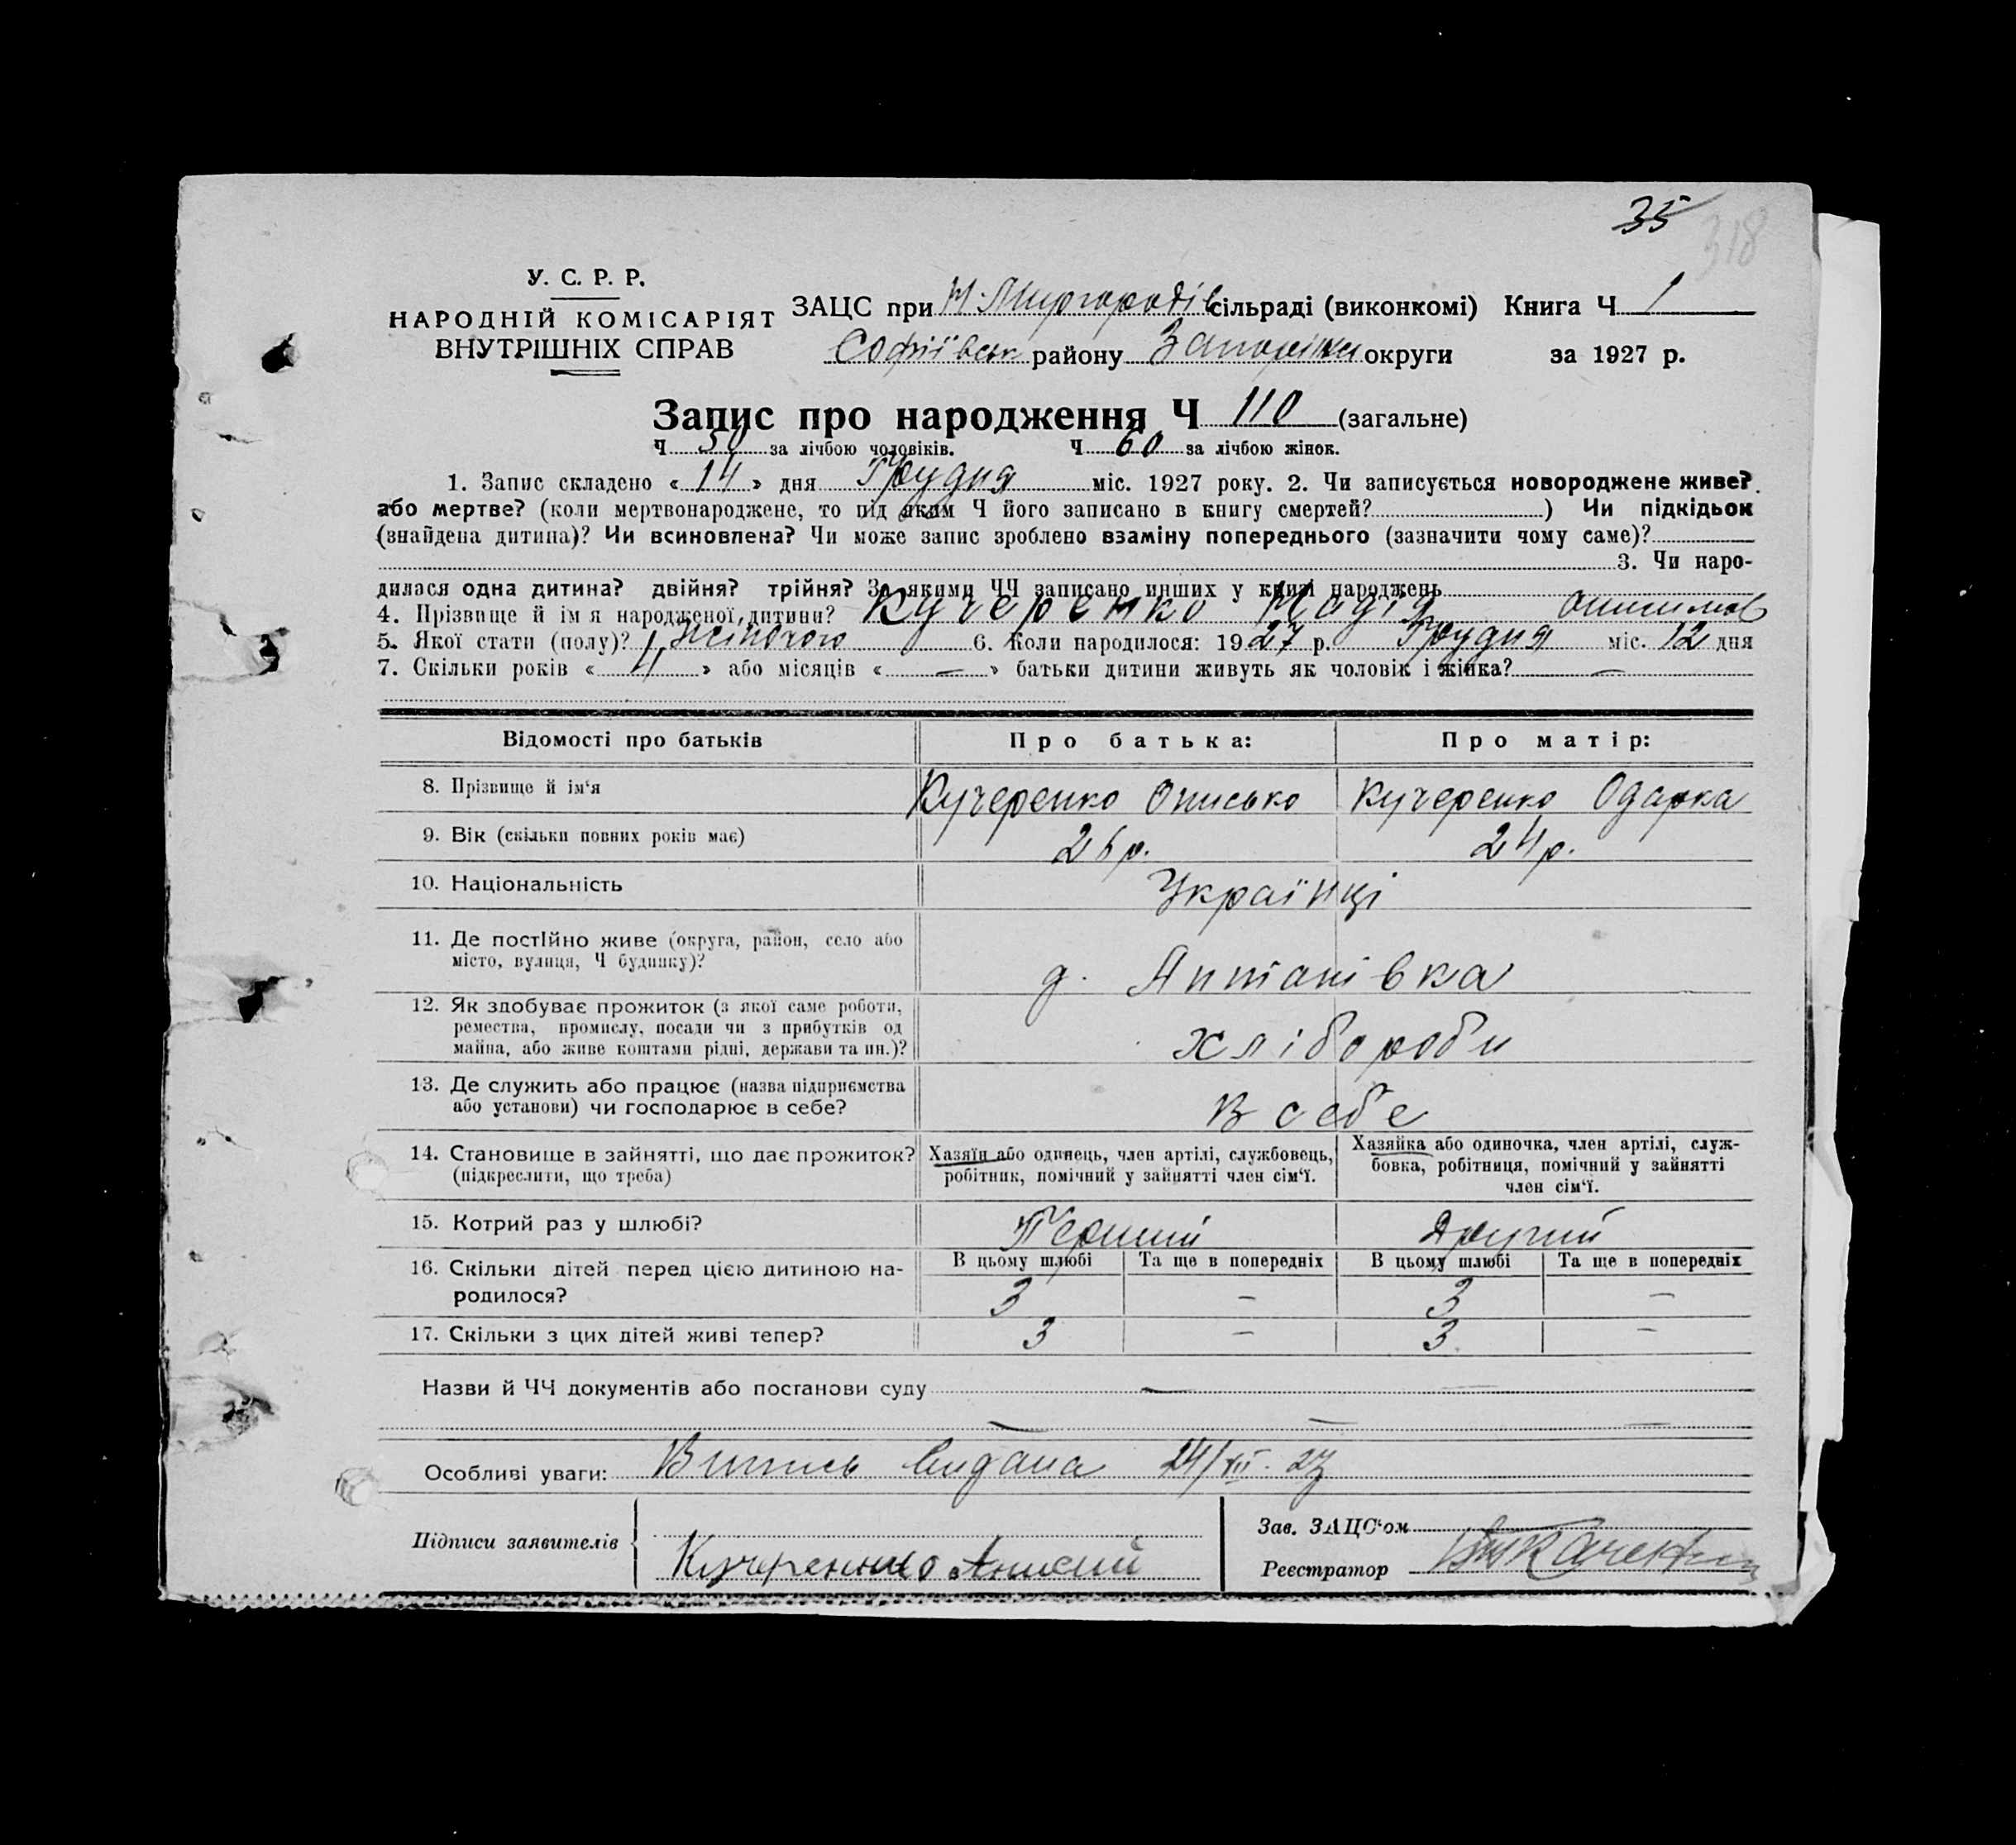 35
318
У. С. Р. Р.
НАРОДНІЙ КОМІСАРІЯТ
ВНУТРІШНІХ СПРАВ
ЗАЦС при М-Миргородів сільраді (виконкомі) Книга Ч 1
Софіївськ району Запоріжж округи за 1927 р.
Запис про народження Ч 110 (загальне)
Ч 50 за лічбою чоловіків. Ч 60 за лічбою жінок.
1. Запис складено « 14 » дня Грудня міс. 1927 року. 2. Чи записується новороджене живе?
або мертве? (коли мертвонароджене, то під яким Ч його записано в книгу смертей? ) Чи підкідьок
(знайдена дитина)? Чи всиновлена? Чи може запис зроблено взаміну попереднього (зазначити чому саме)?
3. Чи наро-
дилася одна дитина? двійня? трійня? За якими ЧЧ записано инших у книзі народжень
4. Прізвище й ім я народженої дитини? Кучеренко Надія
5. Якої стати (полу)? Жіночого 6. Коли народилося: 1927 р. Грудня міс. 12 дня
7. Скільки років « 4 » або місяців « — » батьки дитини живуть як чоловік і жінка? —
Відомості про батьків Про батька: Про матір:
8. Прізвище й ім‘я Кучеренко Онисько Кучеренко Одарка
9. Вік (скільки повних років має) 26 р. 24 р.
10. Національність Українці
11. Де постійно живе (округа, район, село або
місто, вулиця, Ч будинку)? д. Антанівка
12. Як здобуває прожиток (з якої саме роботи,
ремества, промислу, посади чи з прибутків од
майна, або живе коштами рідні, держави та ин.)? хлібороби
13. Де служить або працює (назва підприємства
або установи) чи господарює в себе? в себе
14. Становище в зайнятті, що дає прожиток?
(підкреслити, що треба)
Хазяїн або одинець, член артілі, службовець,
робітник, помічний у зайнятті член сім‘ї.
Хазяйка або одиночка, член артілі, служ-
бовка, робітниця, помічний у зайнятті
член сім‘ї.
15. Котрий раз у шлюбі? Перший Другий
В цьому шлюбі Та ще в попередніх В цьому шлюбі Та ще в попередніх
16. Скільки дітей перед цією дитиною на-
родилося? 3 — 3 —
17. Скільки з цих дітей живі тепер? 3 — 3 —
Назви й ЧЧ документів або постанови суду —
— — —
Особливі уваги: Витись видана 24/XII-27
Підписи заявителів
Кучеренко Анисий
Зав. ЗАЦС‘ом
Реєстратор